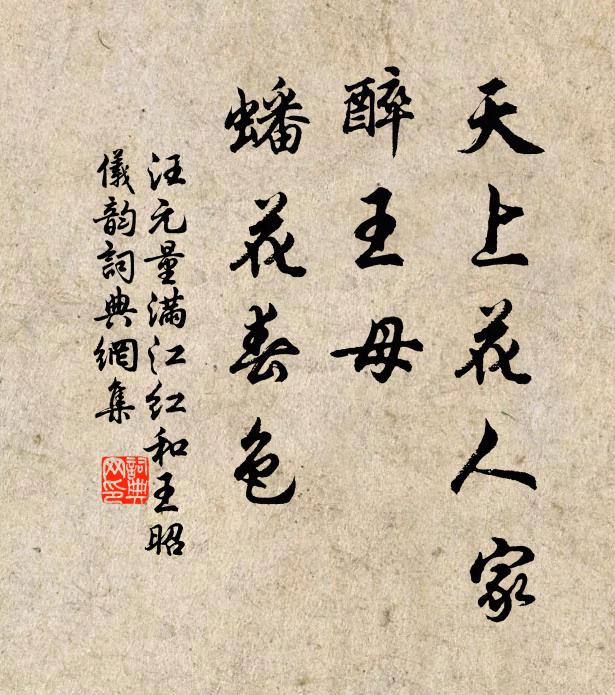 天上花人家
醉王母
蟠花春色
汪元量满江红和王昭
儀韵詞典網集
詞典网印